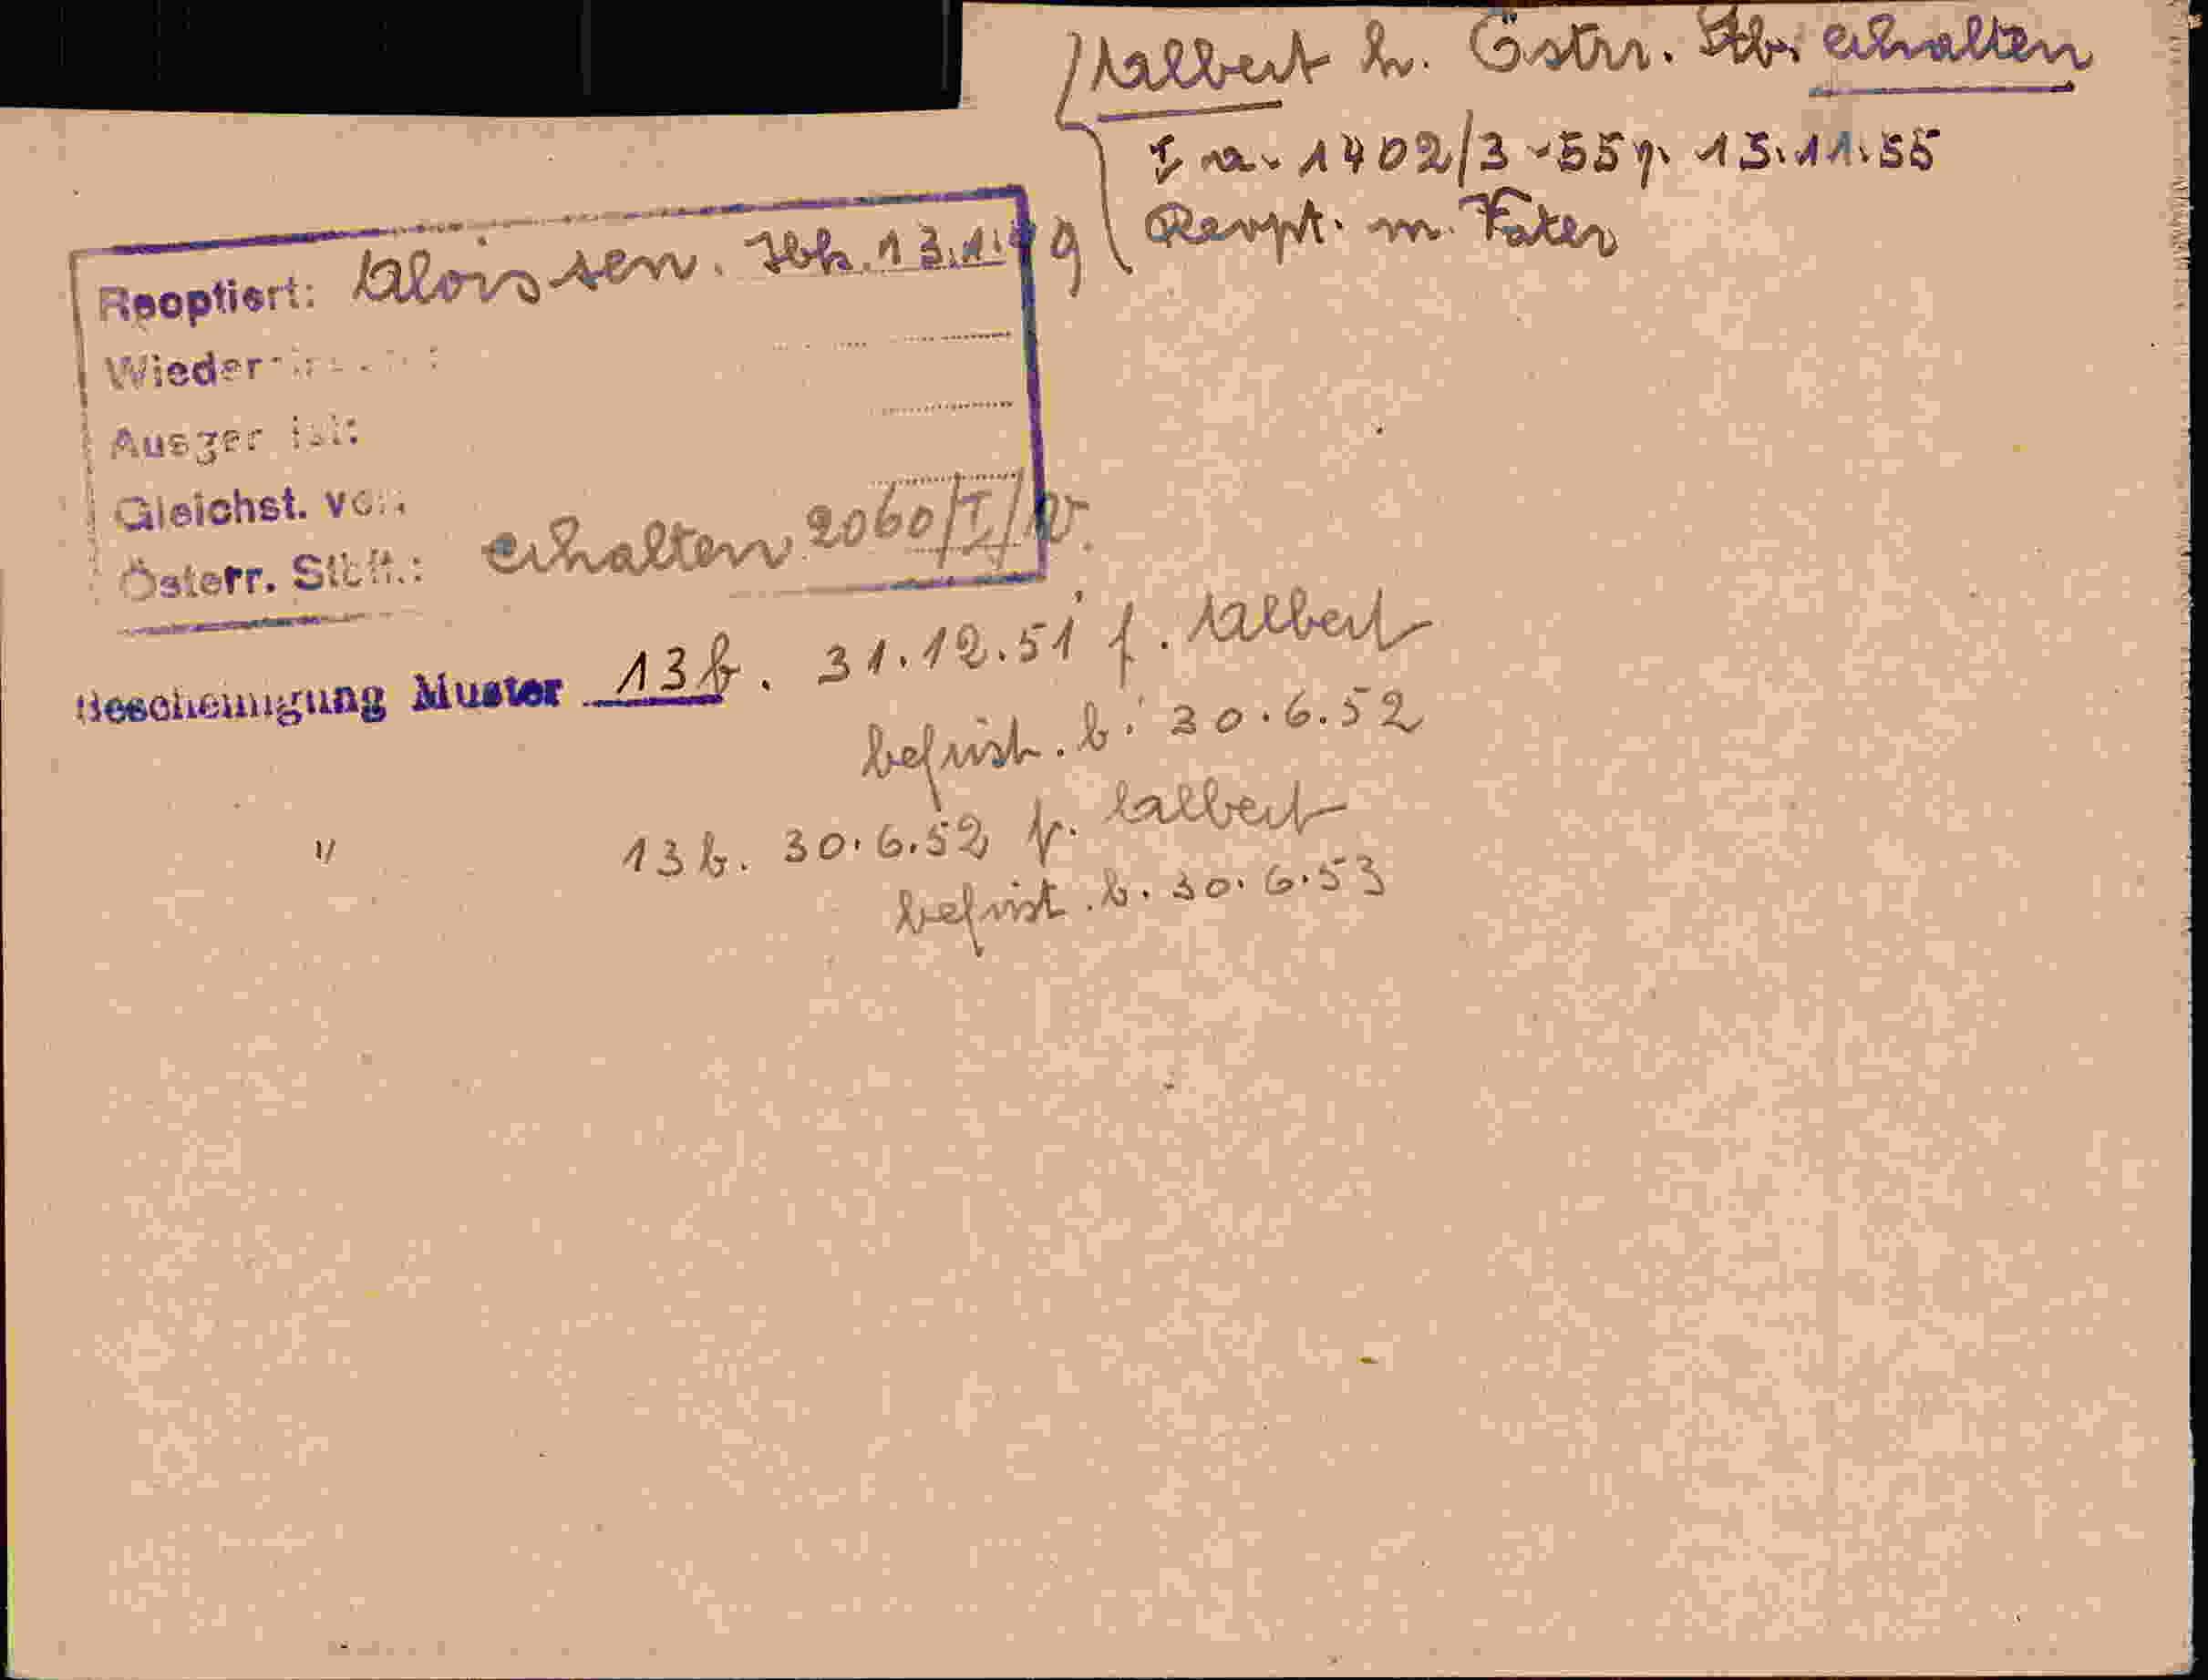 Albert h. Östrr. Stb. erhalten
I a. 1402/3-55 v. 15.11.55
Reopt. m. Vater
Reoptiert: Alois sen. Ibk. 13.1.49
Wieder
Gleichst. v
Österr. Stb.: erhalten 2060/I/
Bescheinigung Muster 13b. 31.12.51 f. Albert
befrist. b. 30.6.52
" 13b. 30.6.52 f. Albert
befrist. b. 30.6.53